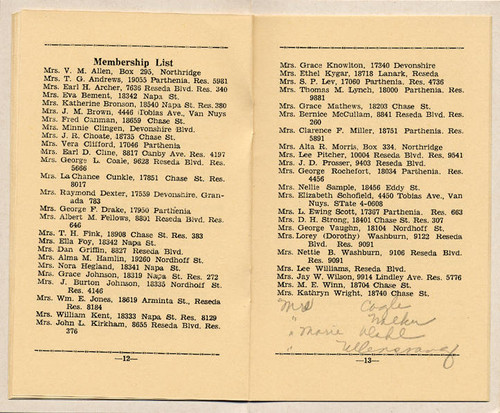 Membership List
Mrs. V. M. Allen, Box 295, Northridge
Mrs. T. G. Andrews, 19055 Parthenia. Res. 5981
Mrs. Earl H. Archer, 7636 Reseda Blvd. Res. 340
Mrs. Eva Bement, 18342 Napa St.
Mrs. Katherine Bronson, 18540 Napa St. Res. 380
Mrs. J. M. Brown, 4446 Tobias Ave., Van Nuys
Mrs. Fred Canman, 18659 Chase St.
Mrs. Minnie Clingen, Devonshire Blvd.
Mrs. J. R. Choate, 18735 Chase St.
Mrs. Vera Clifford, 17046 Parthenia
Mrs. Earl D. Cline, 8817 Canby Ave. Res. 4197
Mrs. George L. Coale, 9628 Reseda Blvd. Res.
5666
Mrs. La Chance Cunkle, 17851 Chase St. Res.
8017
Mrs. Raymond Dexter, 17559 Devonshire. Gran-
ada 783
Mrs. George F. Drake, 17950 Parthenia
Mrs. Albert M. Fellows, 8801 Reseda Blvd. Res.
646
Mrs. T. H. Fink, 18908 Chase St. Res. 383
Mrs. Ella Foy, 18342 Napa St.
Mrs. Dan Griffin, 8827 Reseda Blvd.
Mrs. Alma M. Hamlin, 19260 Nordhoff St.
Mrs. Nora Hegland, 18341 Napa St.
Mrs. Grace Johnson, 18319 Napa St. Res. 272
Mrs. J. Burton Johnson, 18335 Nordhoff St.
Res. 4146
Mrs. Wm. E. Jones, 18619 Arminta St., Reseda
Res. 8184
Mrs. William Kent, 18333 Napa St. Res. 8129
Mrs. John L. Kirkham, 8655 Reseda Blvd. Res.
376
—12—
Mrs. Grace Knowlton, 17340 Devonshire
Mrs. Ethel Kygar, 18718 Lanark, Reseda
Mrs. S. P. Lev, 17060 Parthenia. Res. 4736
Mrs. Thomas M. Lynch, 18000 Parthenia. Res.
9881
Mrs. Grace Mathews, 18203 Chase St.
Mrs. Bernice McCullam, 8841 Reseda Blvd. Res.
260
Mrs. Clarence F. Miller, 18751 Parthenia. Res.
5891
Mrs. Alta R. Morris, Box 334, Northridge
Mrs. Lee Pitcher, 10004 Reseda Blvd. Res. 9541
Mrs. J. D. Prosser, 9403 Reseda Blvd.
Mrs. George Rochefort, 18034 Parthenia. Res.
4456
Mrs. Nellie Sample, 18456 Eddy St.
Mrs. Elizabeth Schofield, 4450 Tobias Ave., Van
Nuys. STate 4-6608
Mrs. L. Ewing Scott, 17387 Parthenia. Res. 663
Mrs. J. H. Strong, 18401 Chase St. Res. 397
Mrs. George Vaughn, 18104 Nordhoff St.
Mrs. Lorey (Dorothy) Washburn, 9122 Reseda
Blvd. Res. 9091
Mrs. Nettie B. Washburn, 9106 Reseda Blvd.
Res. 9091
Mrs. Lee Williams, Reseda Blvd.
Mrs. Jay W. Wilson, 9914 Lindley Ave. Res. 5776
Mrs. M. E. Winn, 18704 Chase St.
Mrs. Kathryn Wright, 18740 Chase St.
Mrs Cagle
" Walker
" Marie
—13—